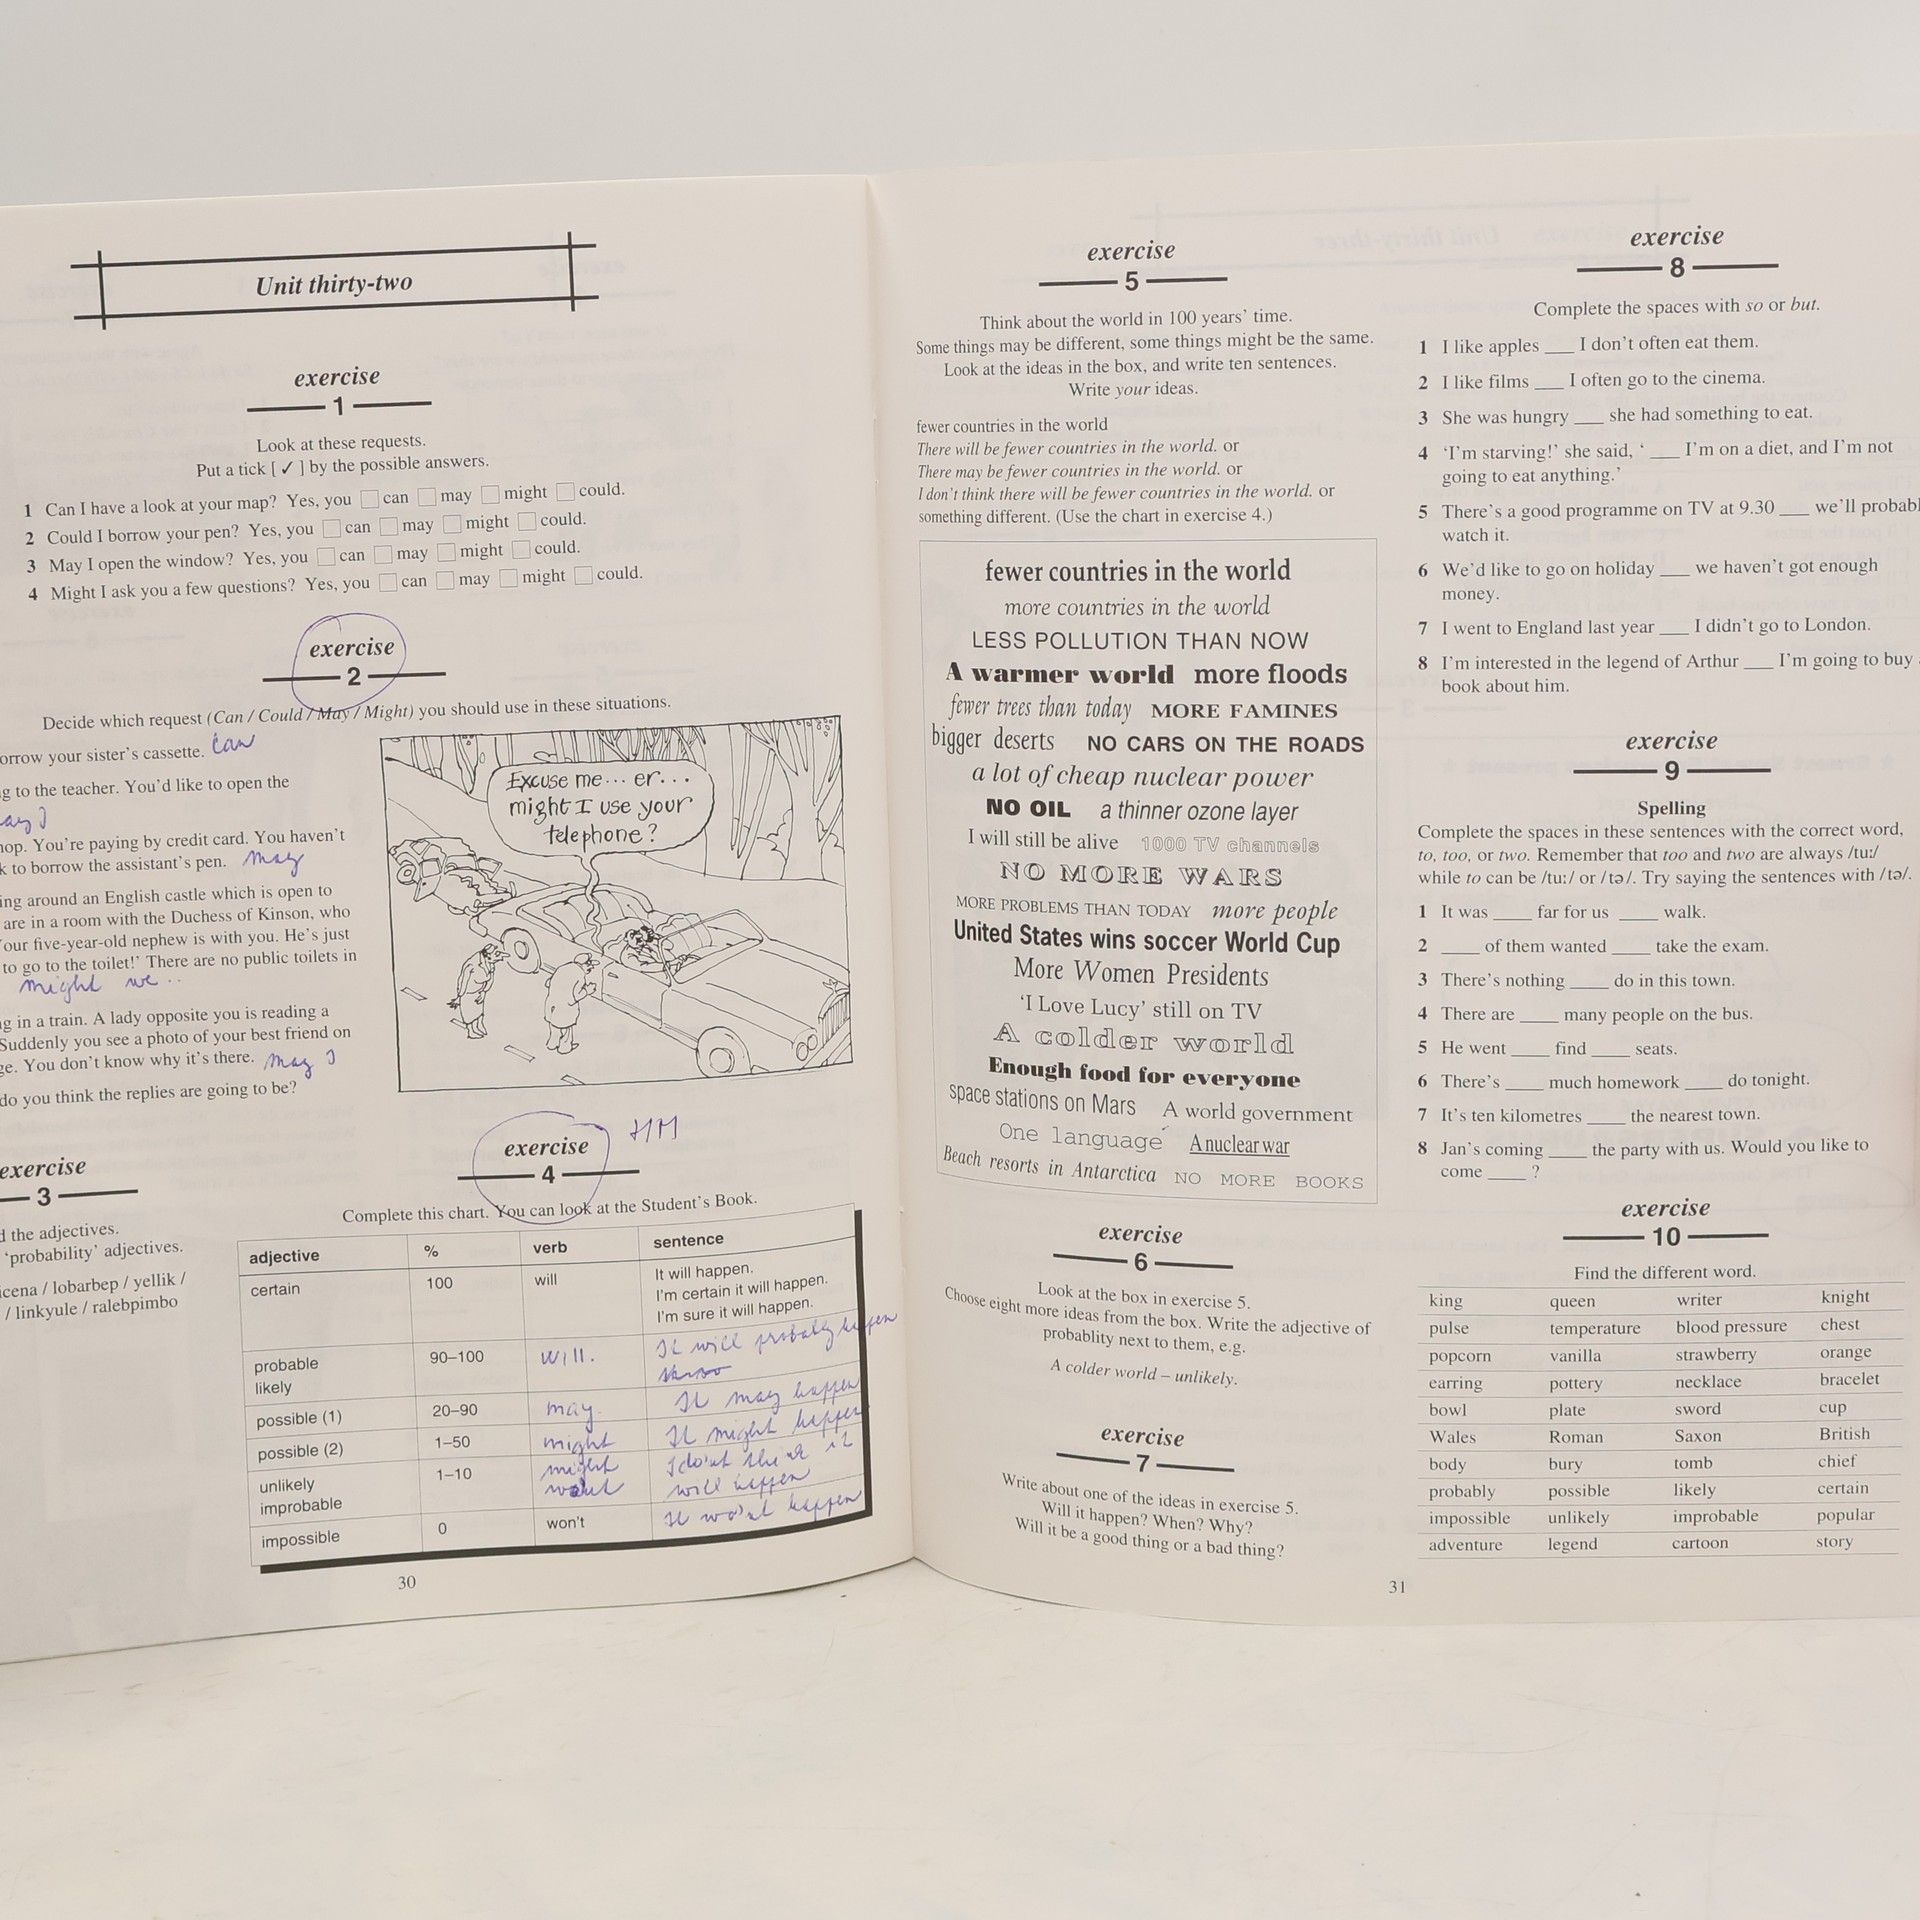 Unit thirty-two
exercise
1
Look at these requests.
Put a tick [ ✓ ] by the possible answers.
1 Can I have a look at your map? Yes, you □ can □ may □ might □ could.
2 Could I borrow your pen? Yes, you □ can □ may □ might □ could.
3 May I open the window? Yes, you □ can □ may □ might □ could.
4 Might I ask you a few questions? Yes, you □ can □ may □ might □ could.
exercise
2
Decide which request (Can / Could / May / Might) you should use in these situations.
orrow your sister's cassette. Can
g to the teacher. You'd like to open the
may I
nop. You're paying by credit card. You haven't
k to borrow the assistant's pen. may
ing around an English castle which is open to
are in a room with the Duchess of Kinson, who
Your five-year-old nephew is with you. He's just
to go to the toilet!' There are no public toilets in
might we ..
g in a train. A lady opposite you is reading a
Suddenly you see a photo of your best friend on
ge. You don't know why it's there. may I
do you think the replies are going to be?
Excuse me... er...
might I use your
telephone?
exercise
3
d the adjectives.
'probability' adjectives.
icena / lobarbep / yellik /
/ linkyule / ralebpimbo
exercise
4
Complete this chart. You can look at the Student's Book.
adjective % verb sentence
certain 100 will It will happen.
I'm certain it will happen.
I'm sure it will happen.
probable 90–100 will. It will probably happen
likely
possible (1) 20–90 may. It may happen
possible (2) 1–50 might It might happen
unlikely 1–10 might I do'nt think it
improbable will happen
impossible 0 won't It wo'nt happen
30
exercise
5
Think about the world in 100 years' time.
Some things may be different, some things might be the same.
Look at the ideas in the box, and write ten sentences.
Write your ideas.
fewer countries in the world
There will be fewer countries in the world. or
There may be fewer countries in the world. or
I don't think there will be fewer countries in the world. or
something different. (Use the chart in exercise 4.)
fewer countries in the world
more countries in the world
LESS POLLUTION THAN NOW
A warmer world more floods
fewer trees than today MORE FAMINES
bigger deserts NO CARS ON THE ROADS
a lot of cheap nuclear power
NO OIL a thinner ozone layer
I will still be alive 1000 TV channels
NO MORE WARS
MORE PROBLEMS THAN TODAY more people
United States wins soccer World Cup
More Women Presidents
'I Love Lucy' still on TV
A colder world
Enough food for everyone
space stations on Mars A world government
One language A nuclear war
Beach resorts in Antarctica NO MORE BOOKS
exercise
6
Look at the box in exercise 5.
Choose eight more ideas from the box. Write the adjective of
probablity next to them, e.g.
A colder world – unlikely.
exercise
7
Write about one of the ideas in exercise 5.
Will it happen? When? Why?
Will it be a good thing or a bad thing?
exercise
8
Complete the spaces with so or but.
1 I like apples ___ I don't often eat them.
2 I like films ___ I often go to the cinema.
3 She was hungry ___ she had something to eat.
4 'I'm starving!' she said, ' ___ I'm on a diet, and I'm not
going to eat anything.'
5 There's a good programme on TV at 9.30 ___ we'll probabl
watch it.
6 We'd like to go on holiday ___ we haven't got enough
money.
7 I went to England last year ___ I didn't go to London.
8 I'm interested in the legend of Arthur ___ I'm going to buy
book about him.
exercise
9
Spelling
Complete the spaces in these sentences with the correct word,
to, too, or two. Remember that too and two are always /tu:/
while to can be /tu:/ or /tə/. Try saying the sentences with /tə/.
1 It was ____ far for us ____ walk.
2 ____ of them wanted ____ take the exam.
3 There's nothing ____ do in this town.
4 There are ____ many people on the bus.
5 He went ____ find ____ seats.
6 There's ____ much homework ____ do tonight.
7 It's ten kilometres ____ the nearest town.
8 Jan's coming ____ the party with us. Would you like to
come ____ ?
exercise
10
Find the different word.
king queen writer knight
pulse temperature blood pressure chest
popcorn vanilla strawberry orange
earring pottery necklace bracelet
bowl plate sword cup
Wales Roman Saxon British
body bury tomb chief
probably possible likely certain
impossible unlikely improbable popular
adventure legend cartoon story
31